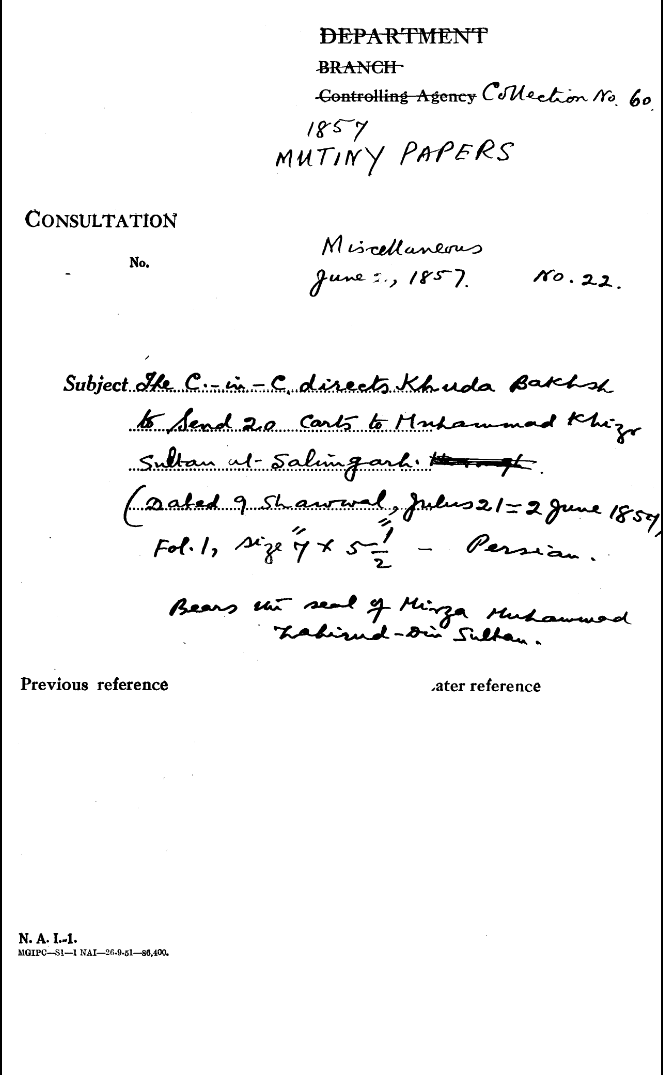 DEPARTMENT
BRANCH
Controlling Agency Collection No. 60.
1857
MUTINY PAPERS
CONSULTATION
No.
Miscellaneous
June 2, 1857. No. 22.
Subject The C.-in-C. directs Khuda Bakhsh
to send 20 carts to Muhammad Khizr
Sultan at Salimgarh.
(Dated 9 Shawwal, Julus 21 = 2 June 1857)
Fol. 1, size 7" x 5 1/2" - Persian.
Bears the seal of Mirza Muhammad
Zahirud-Din Sultan.
Previous reference
ater reference
N. A. I.-1.
MGIPC—S1—1 NAI—26-9-51—86,400.